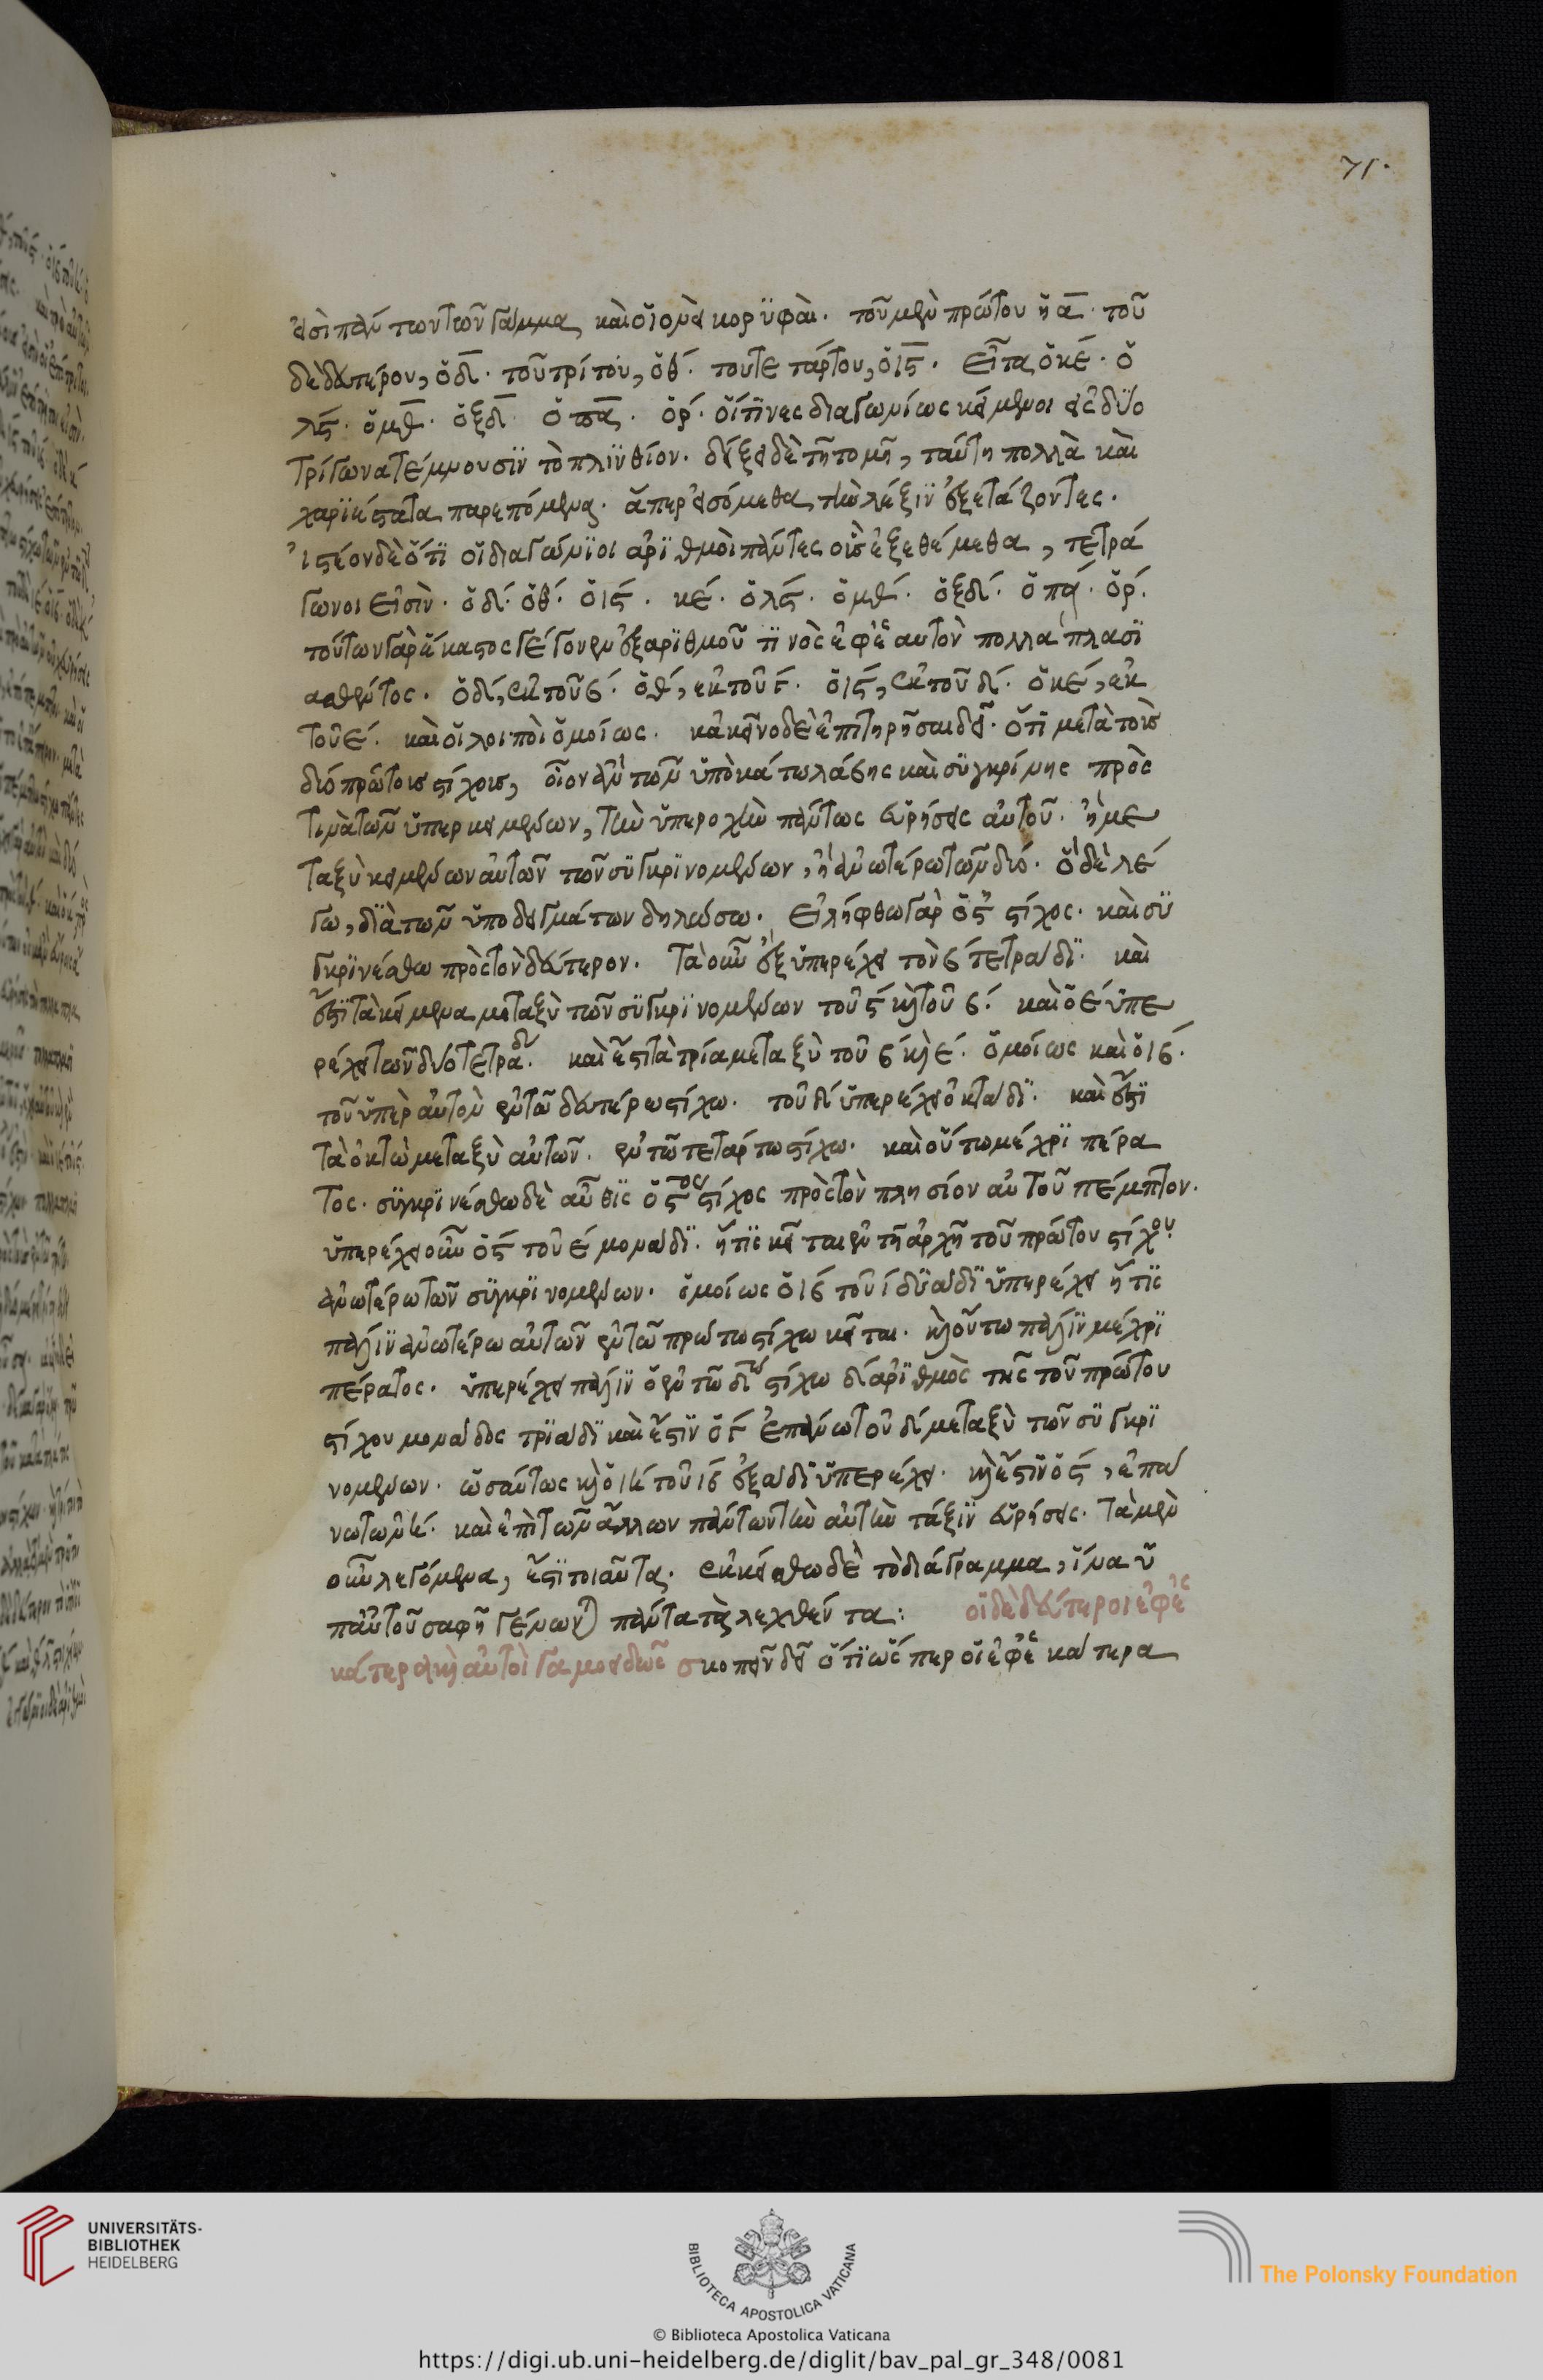 71.
εἰσὶ πάντων τῶν γάμμα, καὶ οἱονεὶ κορϋφαὶ. τοῦ μὲν πρώτου ἡ α. τοῦ
δὲ δευτέρου, ὁ δ. τοῦ τρίτου, ὁ θ. τοῦ τετάρτου, ὁ ις. εἶτα ὁ κε. ὁ
λς. ὁ μθ. ὁ ξδ. ὁ πα. ὁ ρ. οἵτϊνες διαγωνίως κείμενοι εἰς δύο
τρίγωνα τέμνουσϊν τὸ πλϊνθίον. δείξει δὲ τῆ τομῆ, ταύτη πολλὰ καὶ
χαρϊέστατα παρεπόμενα. ἅπερ εἰσόμεθα, τὴν λέξϊν ἐξετάζοντες.
ἰστέον δὲ ὅτϊ οἱ διαγώνϊοι ἀρϊθμοὶ πάντες οὓς ἐξεθέμεθα, τετρά
γωνοι εἰσὶν. ὁ δ. ὁ θ. ὁ ις. κε. ὁ λς. ὁ μθ. ὁ ξδ. ὁ πα. ὁ ρ.
τούτων γὰρ ἕκαστος γέγονεν ἐξ ἀρϊθμοῦ τϊνὸς ἐφ' ἑαυτὸν πολλαπλασϊ
ασθέντος. ὁ δ, ἐκ τοῦ β. ὁ θ, ἐκ τοῦ γ. ὁ ις, ἐκ τοῦ δ. ὁ κε, ἐκ
τοῦ ε. καὶ οἱ λοιποὶ ὁμοίως. κἀκεῖνο δὲ ἐπιτηρῆσαι δεῖ. ὅτϊ μετὰ τοὺς
δύο πρώτους στίχους, οἷον ἂν τῶν ὑποκάτω λάβης καὶ συγκρίνης πρὸς
τινὰ τῶν ὑπερκειμένων, τὴν ὑπεροχὴν πάντως εὑρήσεις αὐτοῦ. ἢ με
ταξὺ κειμένων αὐτῶν τῶν σϋγκρϊνομένων, ἢ ἀνωτέρω τῶν δύο. ὃ δὲ λέ
γω, δϊὰ τῶν ὑποδειγμάτων δηλώσω. εἰλήφθω γὰρ ὁ ς στίχος. καὶ σϋ
γκρϊνέσθω πρὸς τὸν δεύτερον. τὰ οὖν ἓξ ὑπερέχει τὸν β τετράδϊ. καὶ
ἔστϊ τὰ κείμενα μεταξὺ τῶν σϋγκρϊνομένων τοῦ ς καὶ τοῦ β. καὶ ὁ ε ὑπε
ρέχει τῶν δύο τετρα δι. καὶ ἔστι τὰ τρία μεταξὺ τοῦ β καὶ ε. ὁμοίως καὶ ὁ ιβ.
τοῦ ὑπὲρ αὐτοῦ ἐν τῶ δευτέρω στίχω. τοῦ δ ὑπερέχει ὀκτάδϊ. καὶ ἔστϊ
τὰ ὀκτὼ μεταξὺ αὐτῶν. ἐν τῶ τετάρτω στίχω. καὶ οὕτω μέχρϊ πέρα
τος. συγκρϊνέσθω δὲ αὖθϊς ὁ ς ος στίχος πρὸς τὸν πλησίον αὐτοῦ πέμπτον.
ὑπερέχει οὖν ὁ ς τοῦ ε μονάδϊ. ἥτϊς κεῖται ἐν τῆ ἀρχῆ τοῦ πρώτου στίχου
ἀνωτέρω τῶν συγκρϊνομένων. ὁμοίως ὁ ιβ τοῦ ι δϋάδϊ ὑπερέχει ἥτϊς
πάλϊν ἀνωτέρω αὐτῶν ἐν τῶ πρώτω στίχω κεῖται. καὶ οὕτω πάλϊν μέχρϊ
πέρατος. ὑπερέχει πάλϊν ὁ ἐν τῶ δω στίχω δ ἀρϊθμὸς τῆς τοῦ πρώτου
στίχου μονάδος τρϊάδϊ καὶ ἔστϊν ὁ γ ἐπάνω τοῦ δ μεταξὺ τῶν σϋγκρϊ
νομένων. ὡσαύτως καὶ ὁ ιη τοῦ ιβ ἑξάδϊ ὑπερέχει. καὶ ἔστϊν ὁ ς, ἐπά
νω τῶν ιη. καὶ ἐπὶ τῶν ἄλλων πάντων τὴν αὐτὴν τάξϊν εὑρήσεις. τὰ μὲν
οὖν λεγόμενα, ἔστϊ τοιαῦτα. ἐκκείσθω δὲ τὸ διάγραμμα, ἵνα ὑ
π' αὐτοῦ σαφῆ γένωνται πάντα τὰ λεχθέντα: οἱ δὲ δεύτεροι ἐφ' ἑ
κάτερα καὶ αὐτοὶ γαμοειδῶς σκοπεῖν δεῖ ὅτϊ ὥσπερ οἱ ἐφ' ἑκάτερα
UNIVERSITÄTS-
BIBLIOTHEK
HEIDELBERG
BIBLIOTECA APOSTOLICA VATICANA
The Polonsky Foundation
© Biblioteca Apostolica Vaticana
https://digi.ub.uni-heidelberg.de/diglit/bav_pal_gr_348/0081